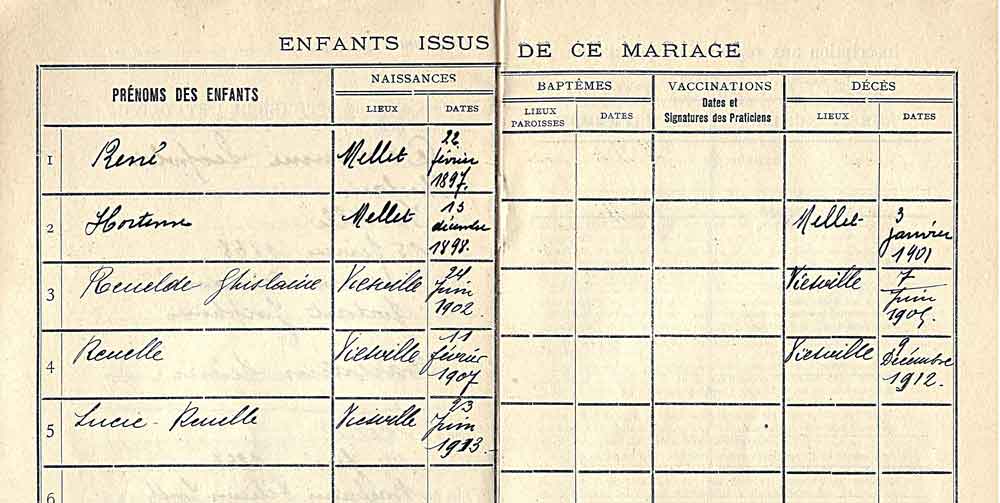 ENFANTS ISSUS DE CE MARIAGE
PRÉNOMS DES ENFANTS
NAISSANCES
BAPTÊMES
VACCINATIONS
DÉCÈS
LIEUX
DATES
LIEUX
PAROISSES
DATES
Dates et
Signatures des Praticiens
LIEUX
DATES
1 René Mellet 22
février
1897.
2 Hortense Mellet 13
décembre
1898.
Mellet 3
janvier
1901
3 Renelde Ghislaine Viesville 24
juin
1902.
Viesville 7
Juin
1905.
4 Renelle Viesville 11
février
1907
Viesville 9
Décembre
1912.
5 Lucie - Renelle Viesville 23
Juin
1913.
6